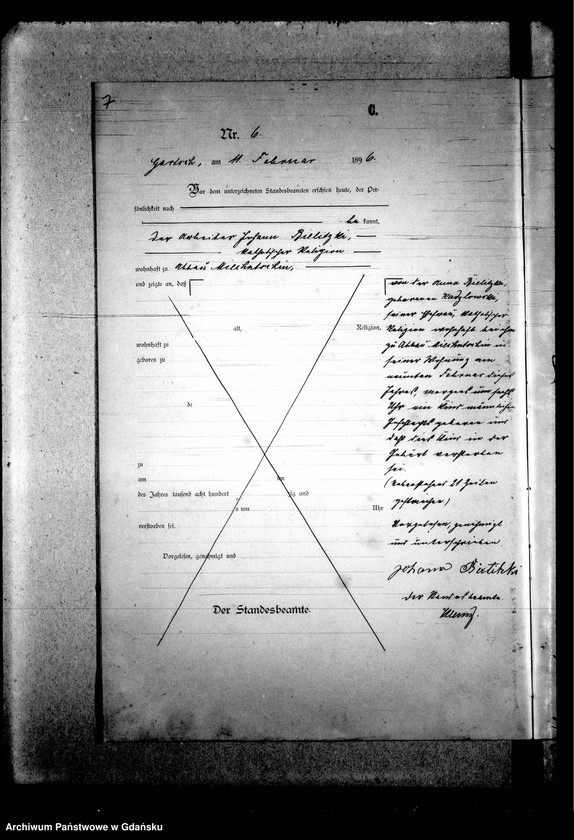 7
C.
Nr. 6.
am 11. Februar 1896.
Vor dem unterzeichneten Standesbeamten erschien heute, der Per-
sönlichkeit nach
be kannt,
der Arbeiter Johann Bielitzki,
katholischer Religion
wohnhaft zu Abbau
und zeigte an, daß
alt, Religion,
wohnhaft zu
geboren zu
de
zu
am ten
des Jahres tausend acht hundert zig und
s um Uhr
verstorben sei.
Vorgelesen, genehmigt und
Der Standesbeamte.
von der Anna Bielitzki,
geborenen
seiner Ehefrau, katholischer
Religion wohnhaft bei ihm
zu Abbau in
seiner Wohnung am
neunten Februar dieses
Jahres, morgens um sechs
Uhr ein Kind männlichen
Geschlechts geboren und
daß dies Kind in der
Geburt verstorben
sei.
(Vorstehend 21 Zeilen
gestrichen)
Vorgelesen, genehmigt
und unterschrieben
Johann
Der Standesbeamte.
Archiwum Państwowe w Gdańsku